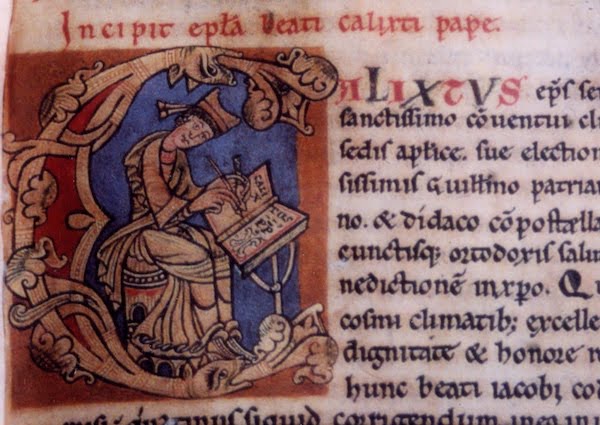 Incipit epła beati calixti pape.
ALIXTVS ep̄s se
sanctissimo cōventui clu
sedis aplice. sue election
sissimis Guillmo patriar
no. & didaco cōpostella
cunctisq; ortodoxis salu
nedictionē in xp̄o. Q
cosmi climatib; excelle
dignitate & honore
hunc beati iacobi cod
siquid corrigendum in eo in